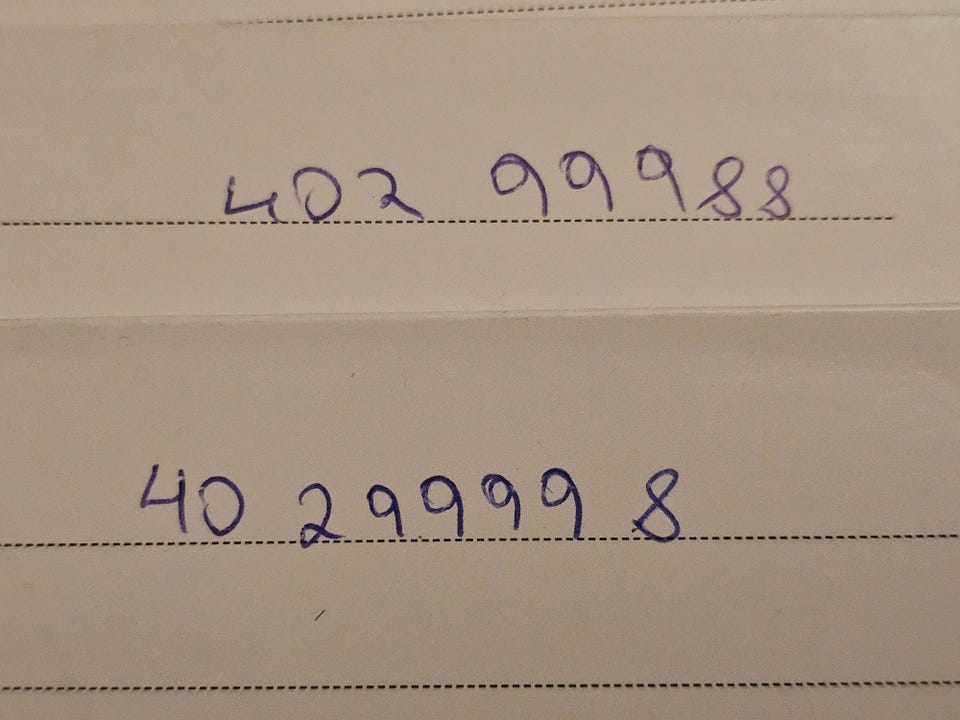 402 99988
40 29999 8